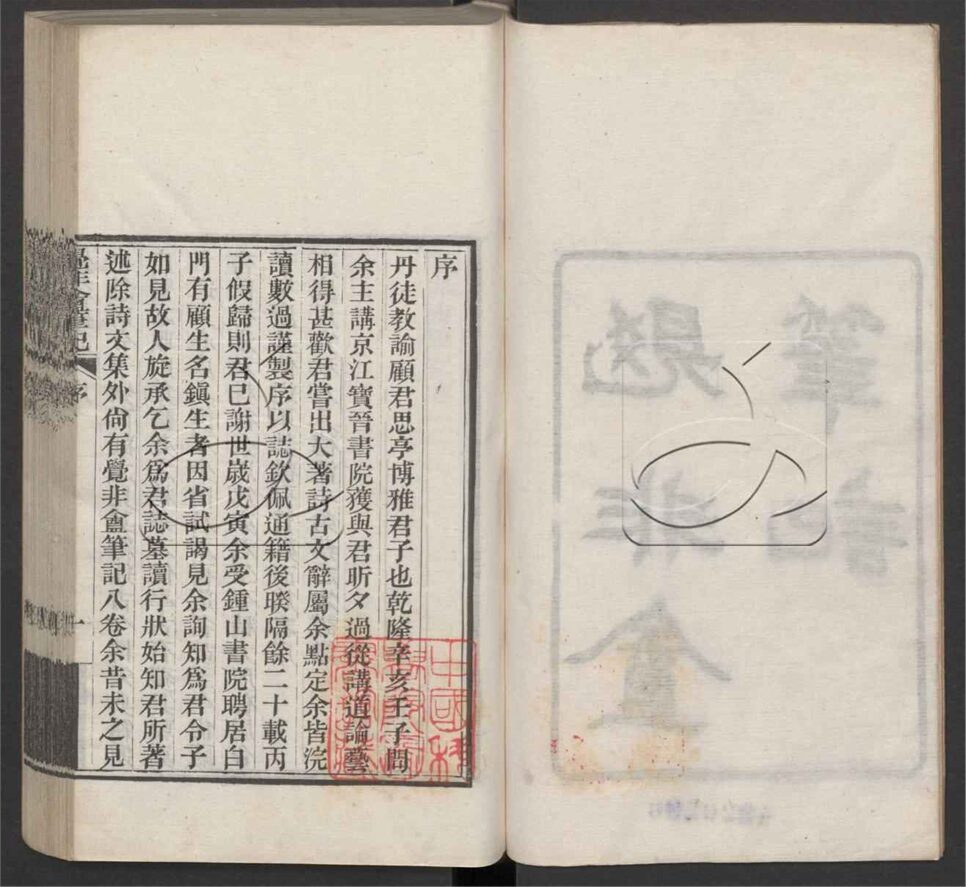 序
丹徒教諭顧君思亭博雅君子也乾隆辛亥壬子間
余主講京江寶晉書院獲與君昕夕過從講道論藝
相得甚歡君嘗出大著詩古文辭屬余點定余皆浣
讀數過謹製序以誌欽佩通籍後睽隔餘二十載丙
子假歸則君已謝世歲戊寅余受鍾山書院聘居白
門有顧生名鎮生者因省試謁見余詢知為君令子
如見故人旋承乞余爲君誌墓讀行狀始知君所著
述除詩文集外尙有覺非盦筆記八卷余昔未之見
覺非盦筆記 序 一